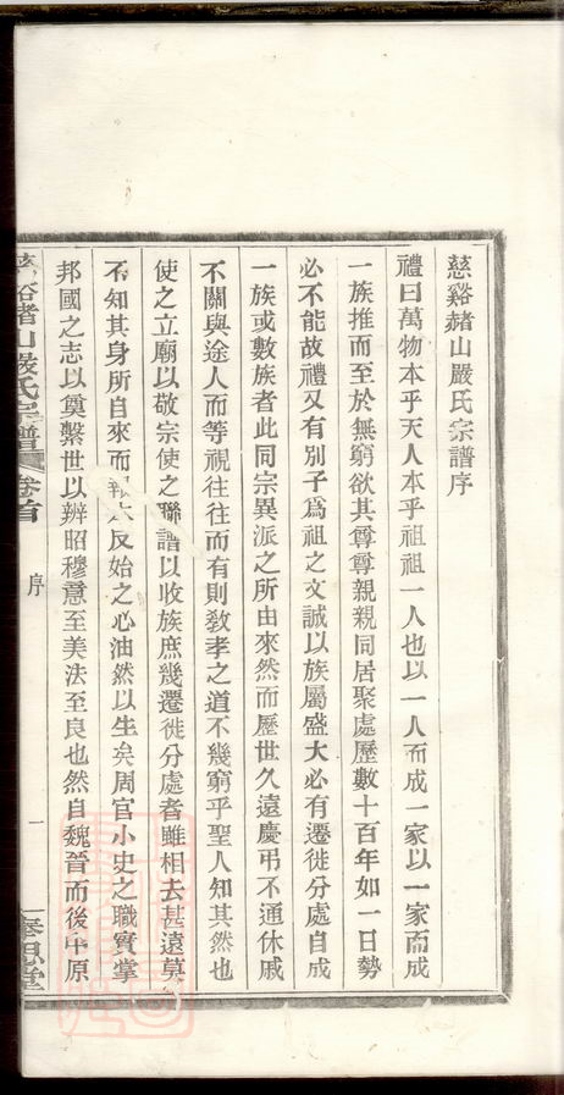 慈谿赭山嚴氏宗譜序
禮曰萬物本乎天人本乎祖祖一人也以一人而成一家以一家而成
一族推而至於無窮欲其尊尊親親同居聚處歷數十百年如一日勢
必不能故禮又有別子爲祖之文誠以族屬盛大必有遷徙分處自成
一族或數族者此同宗異派之所由來然而歷世久遠慶弔不通休戚
不關與途人而等視往往而有則敎孝之道不幾窮乎聖人知其然也
使之立廟以敬宗使之聯譜以收族庶幾遷徙分處者雖相去甚遠莫
不知其身所自來而報本反始之心油然以生矣周官小史之職實掌
邦國之志以奠繫世以辨昭穆意至美法至良也然自魏晉而後中原
慈谿赭山嚴氏宗譜 卷首 序 一 奉思堂